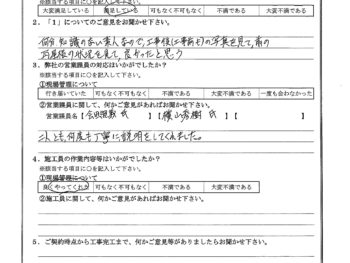 ※該当する項目に○を記入して下さい。
大変満足している 満足している 可もなく不可もなく 不満である 大変不満である
2．「1」についてのご意見をお聞かせ下さい。
何分知識のない素人なので、工事後(工事前も)の写真を見て、前の
お屋根の状況を見て、良かったと思う
3．弊社の営業課員の対応はいかがでしたか？
※該当する項目に○を記入して下さい。
①現場管理について
行き届いていた 可もなく不可もなく 不満である 大変不満である 一度も会わなかった
②営業課員に関して、何かご意見があればお聞かせ下さい。
営業課員名【 氏 】【 横山 氏 】【 】
とても何度も丁寧に説明をしてくれました。
4．施工員の作業内容等はいかがでしたか？
※該当する項目に○を記入して下さい。
①現場管理について
良くやってくれた 可もなく不可もなく 不満である 大変不満である
②施工員に関して、何かご意見があればお聞かせ下さい。
5．ご契約時点から工事完工まで、何かご意見等がありましたらお聞かせ下さい。